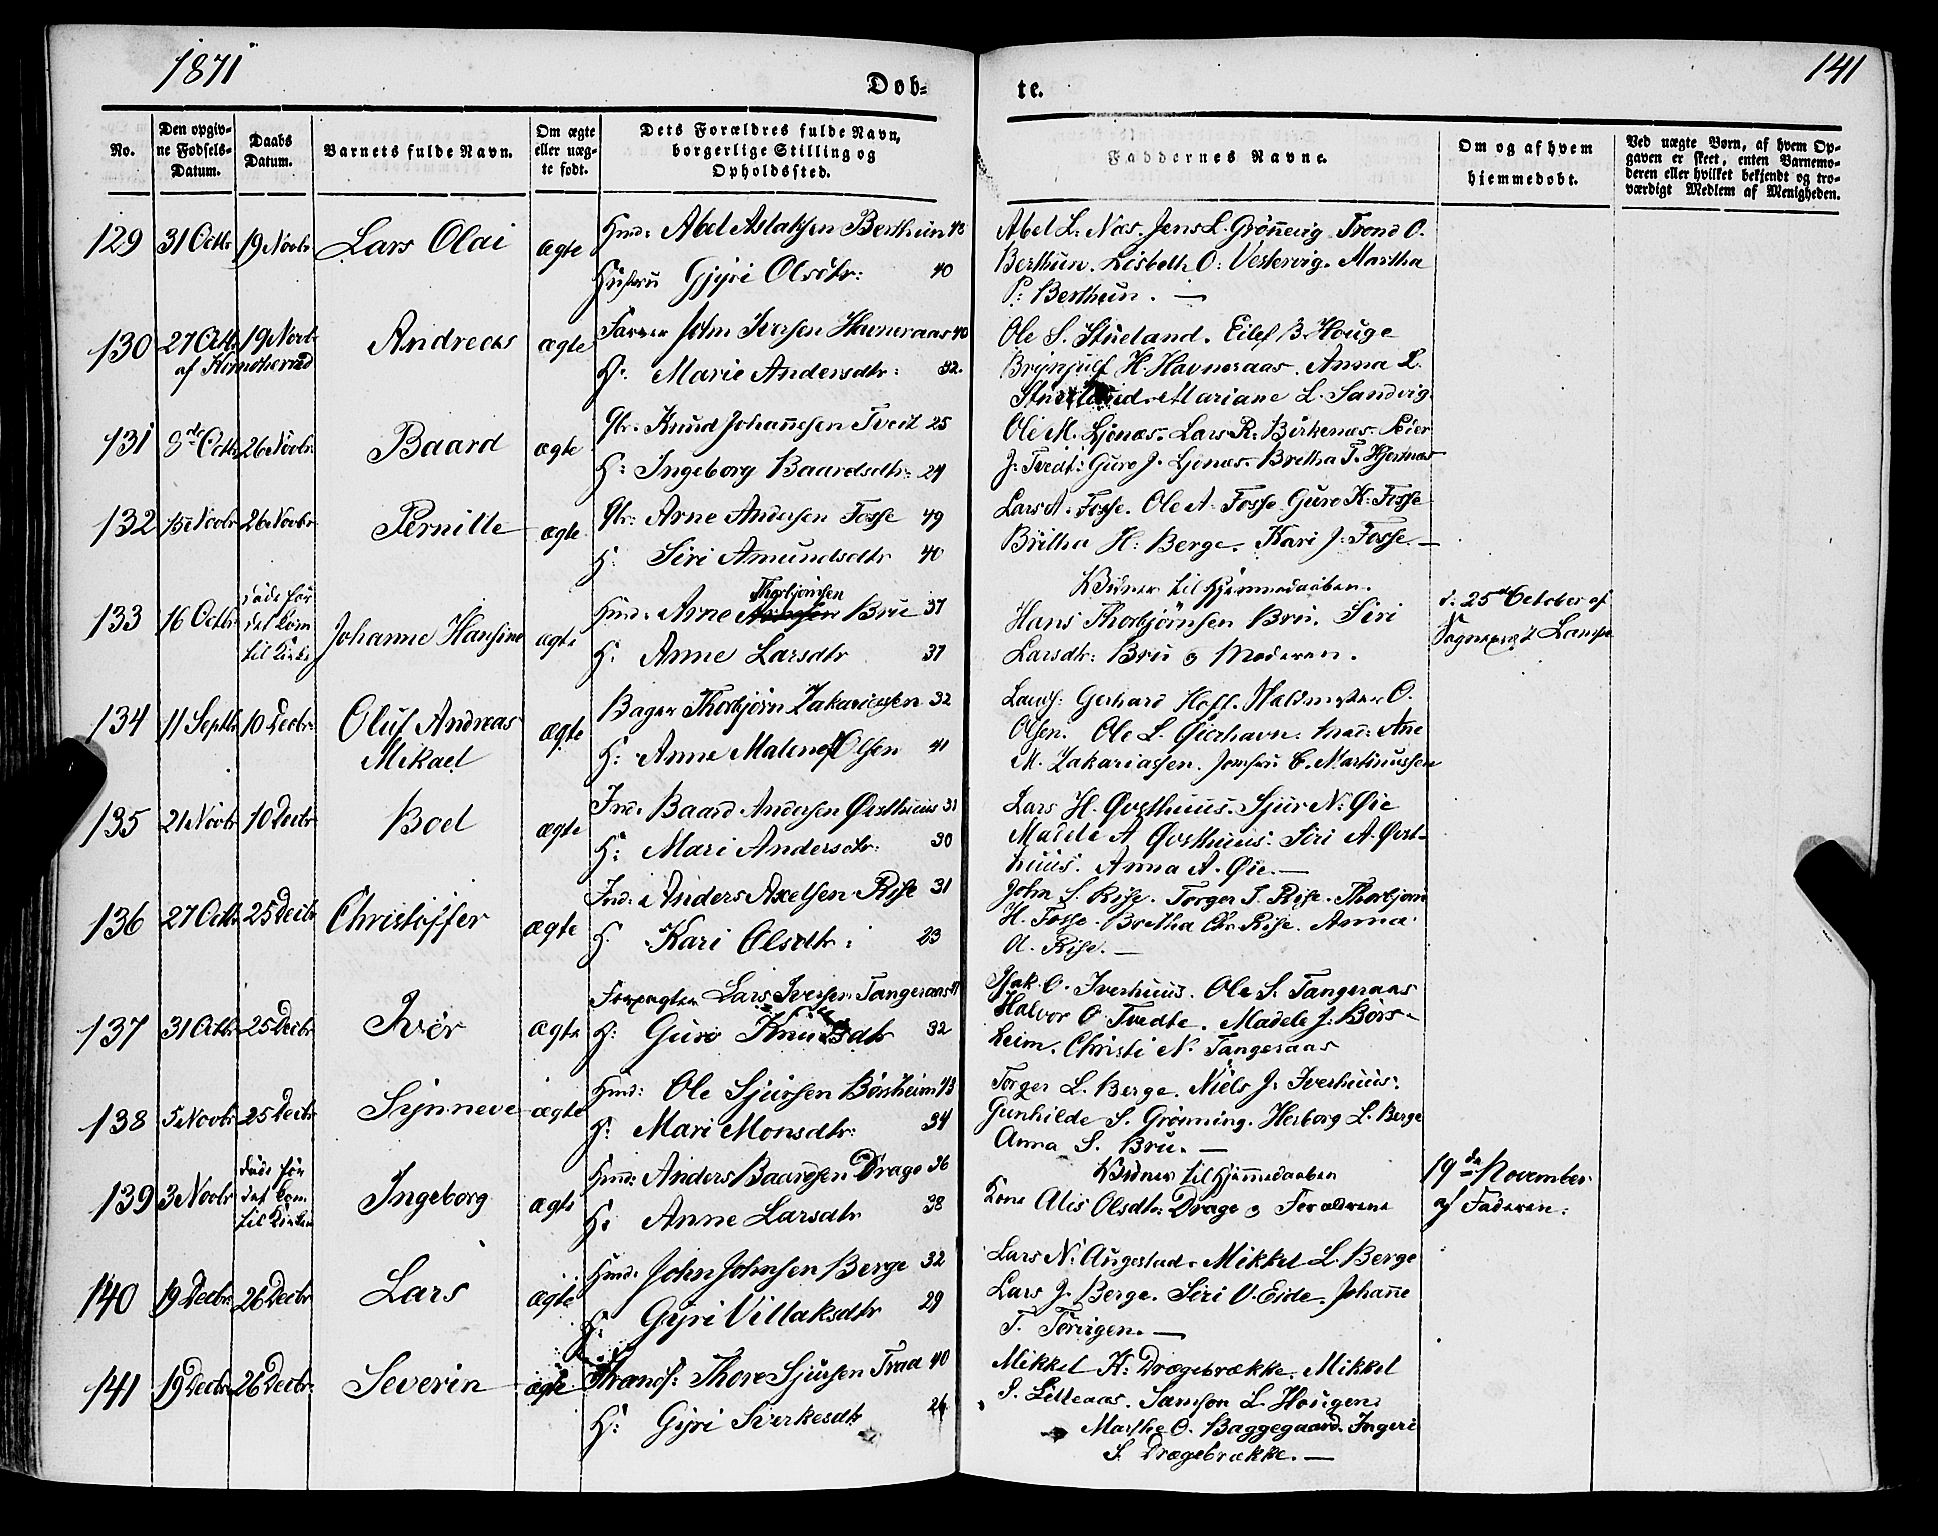 1871
141
Døb-
te.
No.
Den opgiv-
ne Fødsels-
Datum.
Daabs
Datum.
Barnets fulde Navn.
Om ægte
eller uæg-
te født.
Dets Forældres fulde Navn,
borgerlige Stilling og
Opholdssted.
Faddernes Navne.
Om og af hvem
hjemmedøbt.
Ved uægte Børn, af hvem Op-
gaven er skeet, enten Barnemo-
deren eller hvilket bekjendt og tro-
værdigt Medlem af Menigheden.
129 31 Octbr 19 Novbr Lars Olai ægte
Hmd: Abel Aslaksen Berthun 42
Hustru Gjyri Olsdtr: 40
Abel L. Næs. Jens L. Grønnevig. Trond O.
Berthun. Lisbeth O: Vestervig. Martha
P: Berthun. —
130 27 Octb 19 Novbr Andreas ægte
af
Farver John Iversen Havneraas 40
H. Marie Andersdtr: 32.
Ole S. Stueland. Eilef B. Houge
Brynjulf H. Havneraas. Anna L.
Stueland. Mariane L. Sandvig.
131 8de Octb 26 Novbr Baard ægte
Gbr. Knud Johannesen Tveit 25
H: Ingeborg Baardsdtr: 24
Ole M. Ljønæs. Lars R. Birkenæs. Peder
J. Tvedt: Guro J. Ljønæs. Britha T. Hjertnæs
132 15 Novbr 26 Novbr Pernille ægte
Gbr: Arne Andersen Fosse 49
H: Siri Amundsdtr 40
Lars A. Fosse. Ole A. Fosse. Guro K: Fosse
Britha H: Berge. Kari J. Fosse. —
133 16 Octb døde før
det kom
til Kirke Johanne Hansine ægte
Thorbjørnsen
Hmd: Arne Bru 37
H. Anne Larsdtr 37
Vidner til Hjemmedaaben.
Hans Thorbjørnsen Bru. Siri
Larsdtr: Bru og Moderen.
d: 25de October af
Sognepræst Lampe
134 11 Septb 10 Decbr: Oluf Andreas
Mikael ægte
Bager Thorbjørn Zakariasen 32
H: Anne Malene Olsen 41
Gerhard O.
Olsen. Ole L. Gierhavn. Ane
M. Zakariassen. Jomfru C. Martinussen
135 21 Novbr 10 Decbr Boel ægte
Ind: Baard Andersen Øvsthuus 31
H: Mari Andersdtr: 30
Lars H. Øvsthuus. Sjur N. Øie
Madele A Øvsthuus. Siri A. Øvst-
huus. Anna A. Øie. —
136 27 Octb 25 Decbr Christoffer ægte
Ind: Anders Axelsen Rise 31
H. Kari Olsdtr: 23
John S. Rise. Torger T. Rise. Thorbjørn
H. Fosse. Britha Chr. Rise. Anna
A. Rise. —
137 31 Octb 25 Decbr Iver ægte
Forpagter Lars Iversen Tangeraas
H: Guro Knudsdtr 32
Isak O. Iverhuus. Ole S. Tangeraas
Halvor O. Tvedte. Madele J. Børs-
heim. Christi N. Tangeraas
138 5 Novbr 25 Decbr Synneve ægte
Hmd: Ole Sjursen Børsheim 43
H: Mari Monsdtr: 34
Torger L. Berge. Niels J. Iverhuus.
Gunhilde S. Grønning. Herborg L. Berge
Anna S. Bru. —
139 3 Novbr døde før
det kom
til Kirken Ingeborg ægte
Hmd: Anders Baardsen Drage 36
H: Anne Larsdtr 38
Vidner til Hjemmedaaben
Kone Alis Olsdtr: Drage og Forældrene
19de November
af Faderen.
140 19 Decbr 26 Decbr Lars ægte
Hmd. John Johnsen Berge 32
H: Gyri Villaksdtr 29
Lars N. Augestad. Mikkel L. Berge
Lars J. Berge. Siri V. Eide. Johanne
T. Tørvigen. —
141 19 Decbr 26 Decbr: Severin ægte
Strands: Thore Sjursen Traa 40
H: Gyri Sverkesdtr 26
Mikkel K: Drægebrække. Mikkel
S. Lilleaas. Samson L. Hougen.
Marthe O. Baggegaard. Ingeri
S. Drægebrække. —